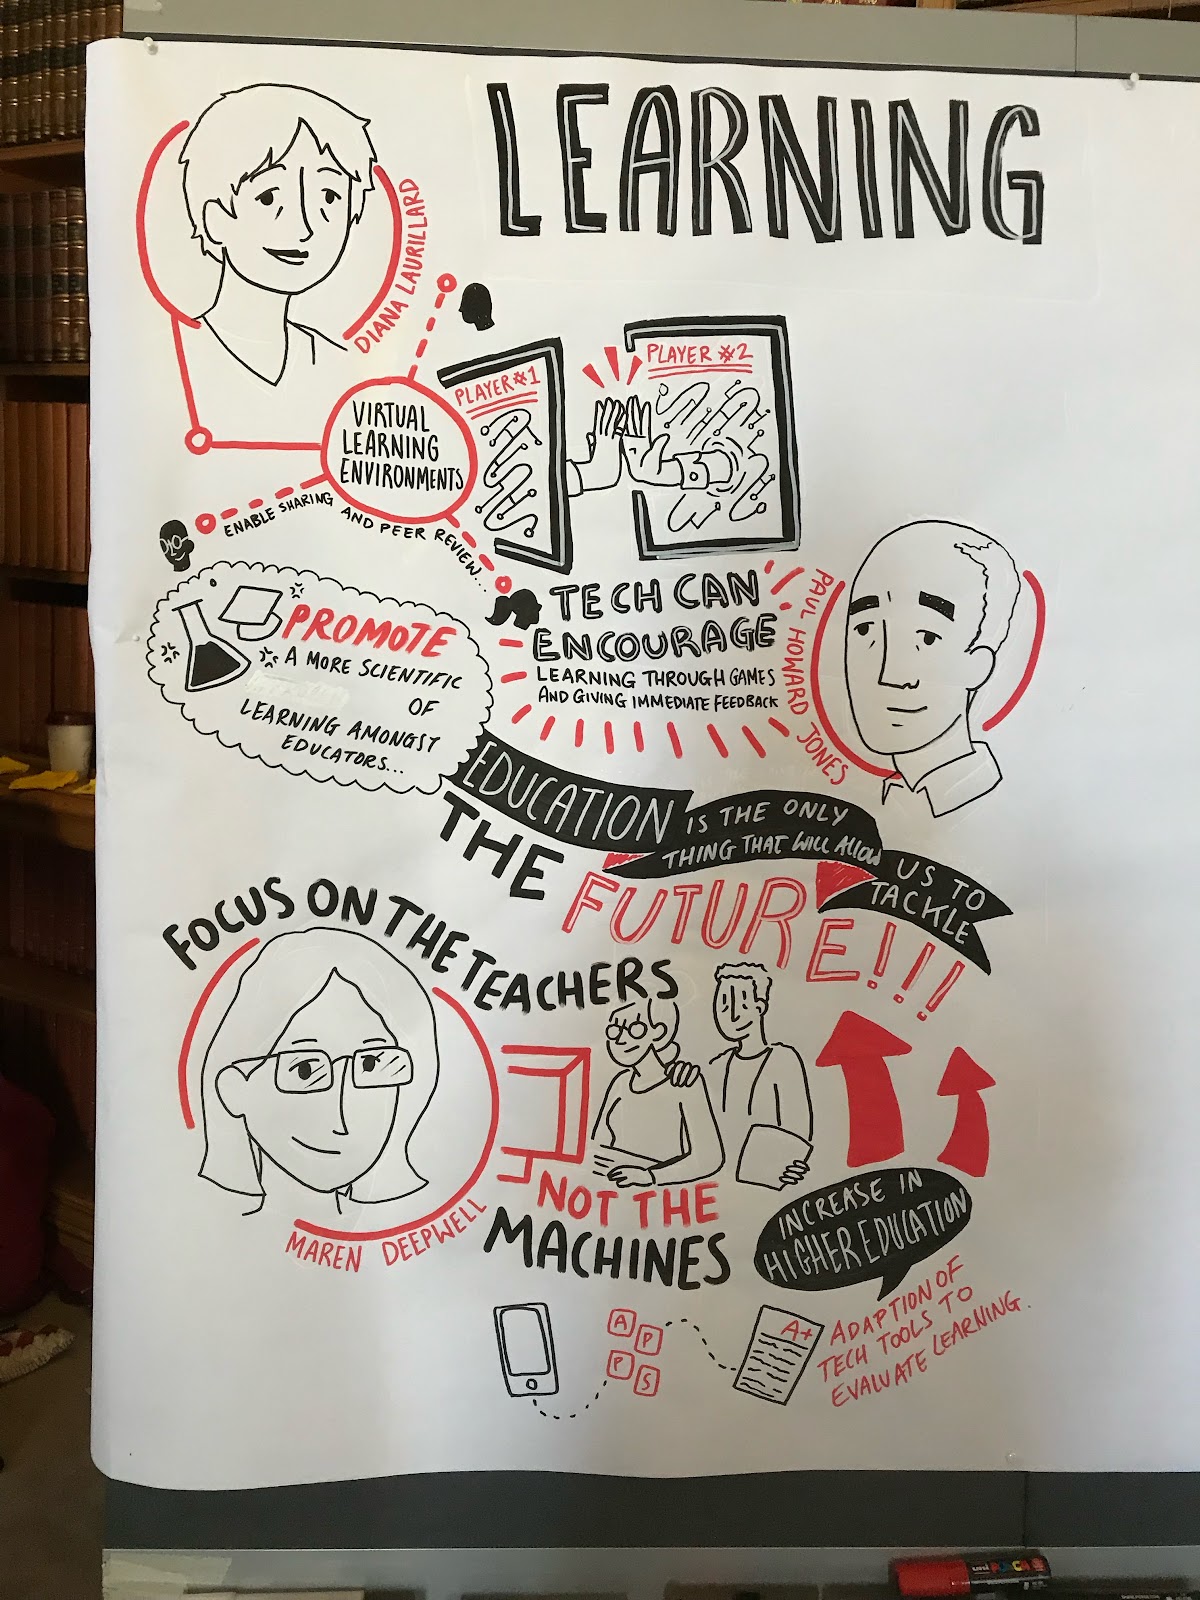 LEARNING
DIANA LAURILLARD
VIRTUAL
LEARNING
ENVIRONMENTS
ENABLE SHARING AND PEER REVIEW...
PLAYER #1
PLAYER #2
PROMOTE
A MORE SCIENTIFIC
OF
LEARNING AMONGST
EDUCATORS...
TECH CAN
ENCOURAGE
LEARNING THROUGH GAMES
AND GIVING IMMEDIATE FEEDBACK
PAUL HOWARD JONES
EDUCATION
IS THE ONLY
THING THAT WILL ALLOW
US TO
TACKLE
THE
FUTURE!!!
FOCUS ON THE TEACHERS
MAREN DEEPWELL
NOT THE
MACHINES
INCREASE IN
HIGHER EDUCATION
ADAPTION OF
TECH TOOLS TO
EVALUATE LEARNING.
A P
P S
A+
uni POSCA